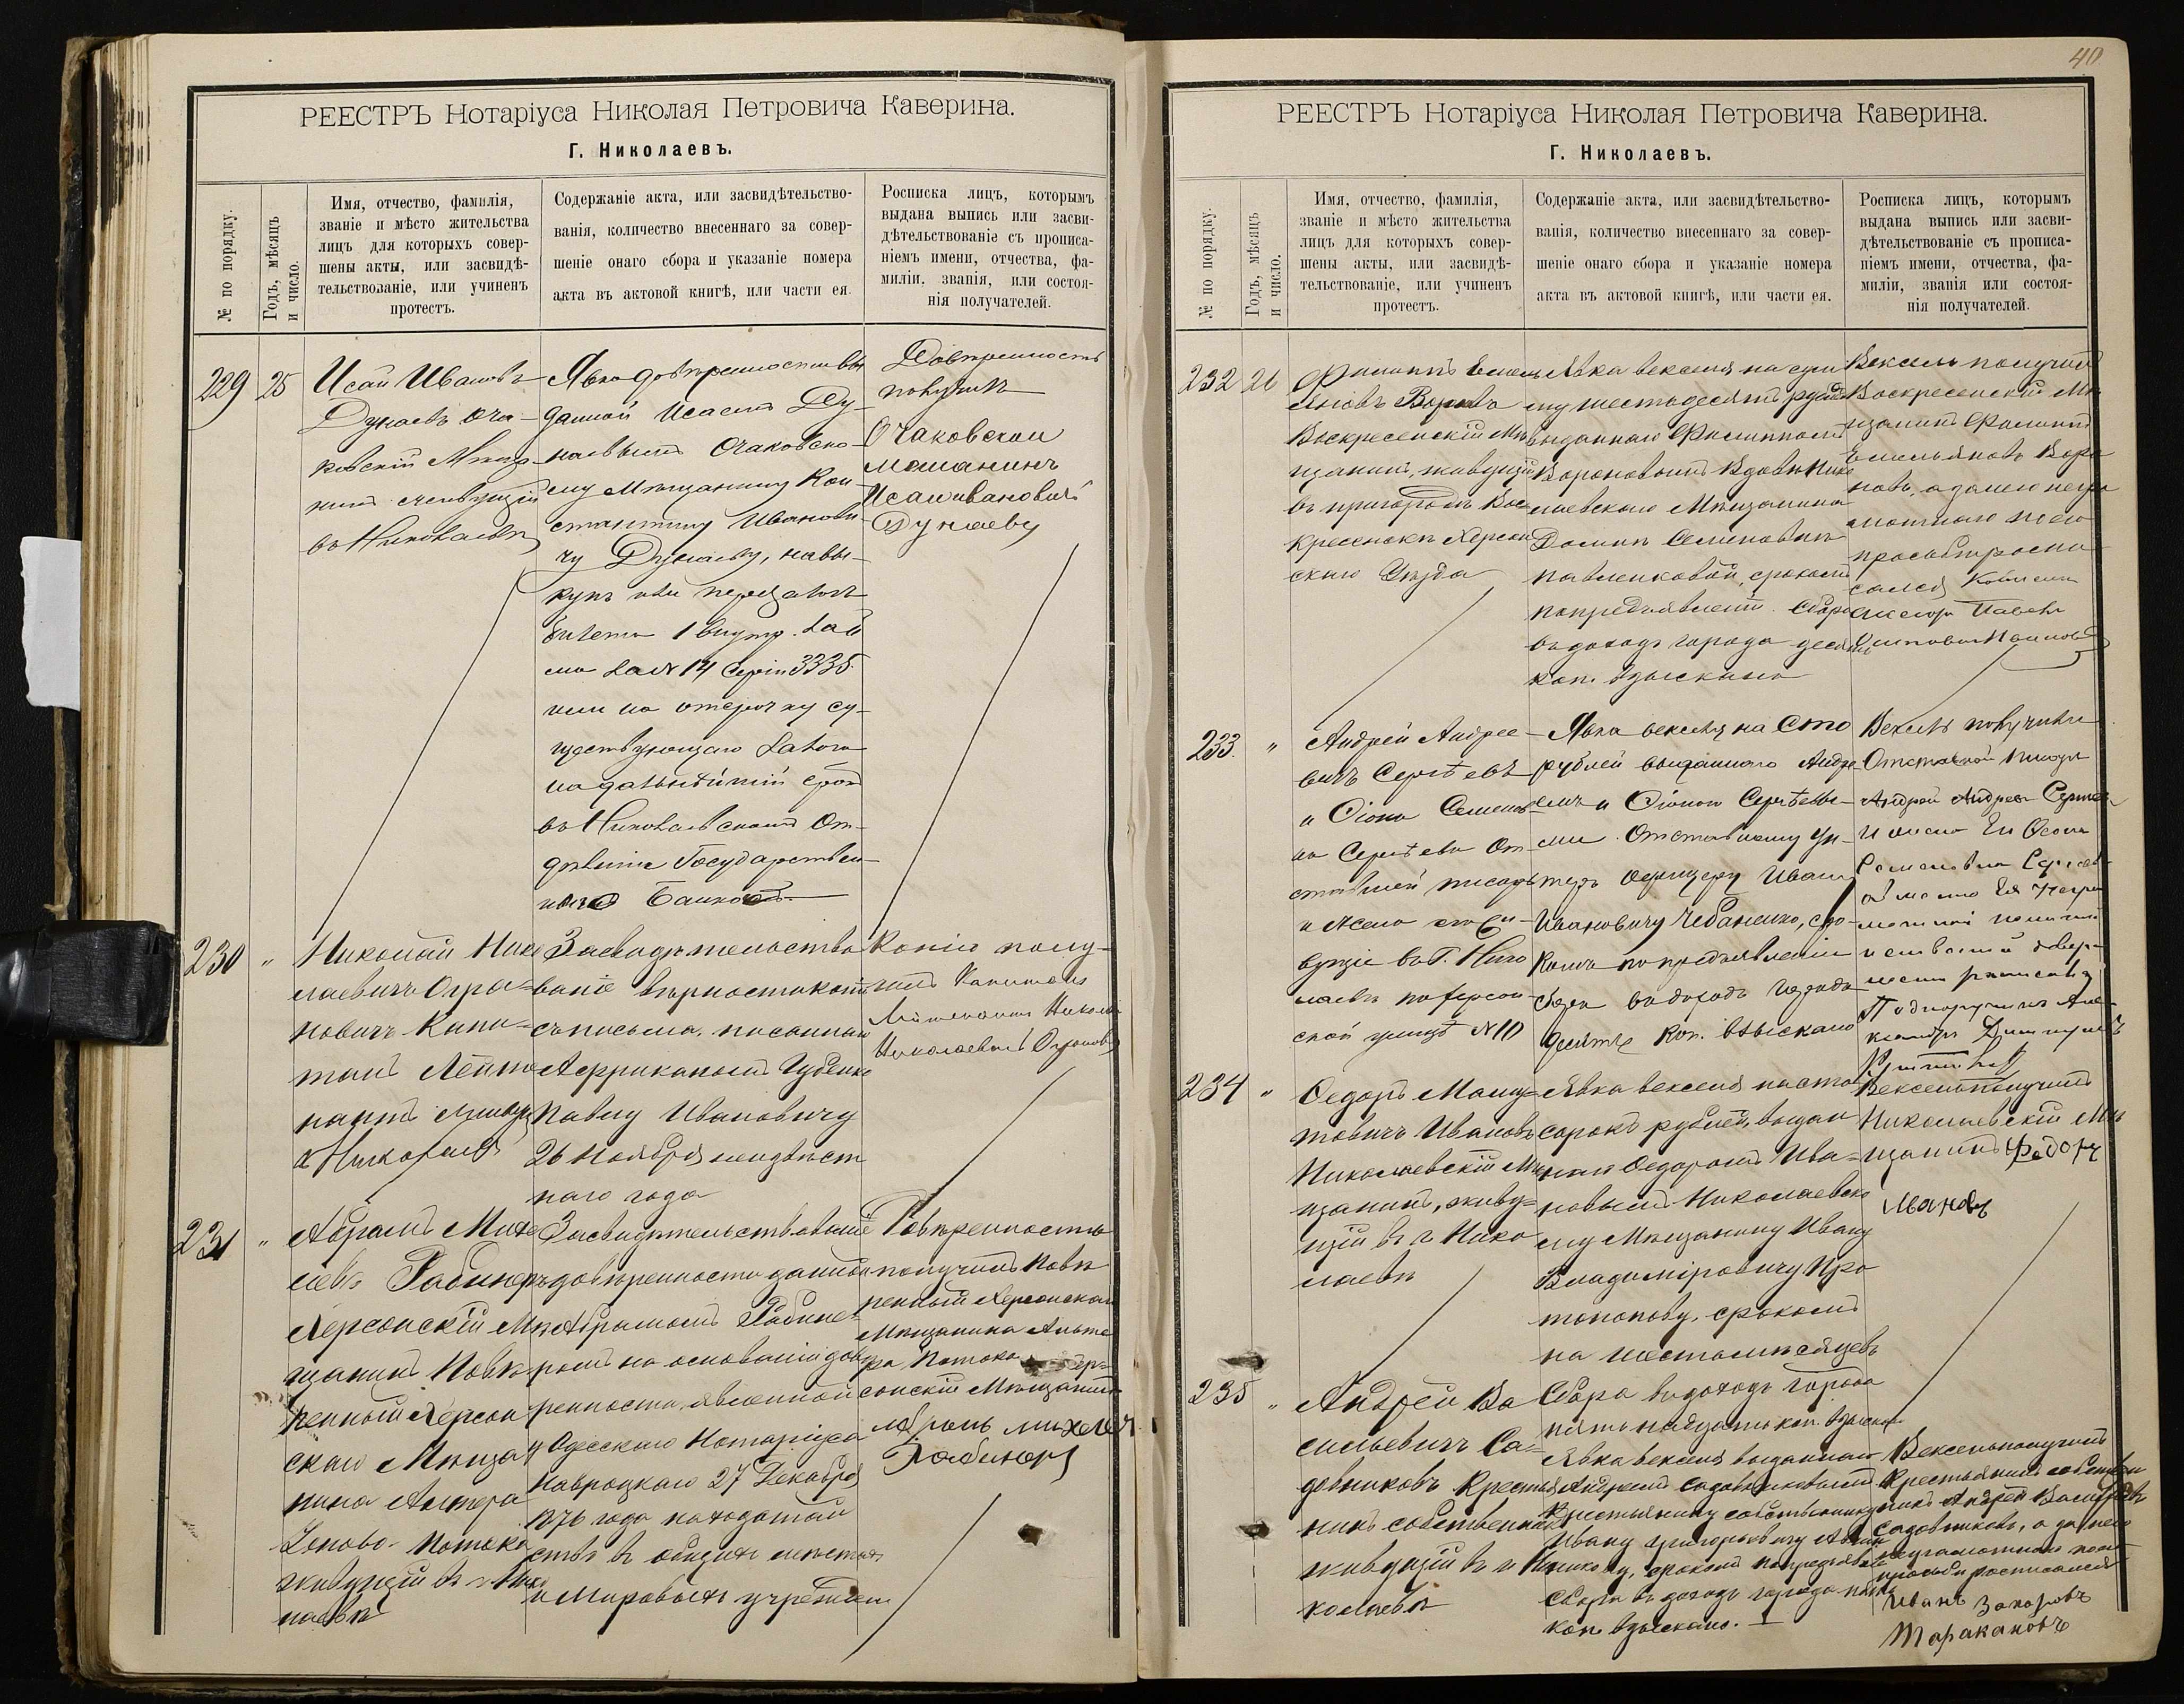 РЕЕСТРЪ Нотаріуса Николая Петровича Каверина.
Г. Николаевъ.
№ по порядку.
Годъ, мѣсяцъ
и число.
Имя, отчество, фамилія,
званіе и мѣсто жительства
лицъ для которыхъ совер-
шены акты, или засвидѣ-
тельствованіе, или учиненъ
протестъ.
Содержаніе акта, или засвидѣтельство-
ванія, количество внесеннаго за совер-
шеніе онаго сбора и указаніе номера
акта въ актовой книгѣ, или части ея.
Росписка лицъ, которымъ
выдана выпись или засви-
дѣтельствованіе съ прописа-
ніемъ имени, отчества, фа-
миліи, званія, или состоя-
нія получателей.
229
25
Исай Ивановъ
Дунаевъ Оча-
ковскій Мѣща-
нинъ живущій
въ Николаевѣ
Явка довѣренности вы
данной Исаемъ Ду-
наевымъ Очаковско-
му Мѣщанину Кон-
стантину Иванови-
чу Дунаеву, на вы-
купъ или перезалогъ
билета 1 внутр. Зай
ма за № 14 Серіи 3335
или на отсрочку су-
ществующаго залога
на дальнѣйшій срокъ
въ Николаевскомъ От-
дѣленіи Государствен-
Довѣренность
получилъ
Очаковскои
мешанинъ
Исаи ивановичъ
Дунаевъ
230
"
Николай Нико
лаевичъ
Капи-
танъ Лейте
нантъ
Засвидѣтельство
ваніе вѣрности копіи
съ письма, писаннаго
Павлу Ивановичу
26 Ноября неизвѣст
наго года
Копію полу-
чилъ Капитанъ
Лейтенантъ Николай
Николаевичъ
231
"
Абрамъ Михе
левъ Рабинеръ
Херсонскій Мѣ
щанинъ Повѣ-
ренный Херсон
скаго Мѣща
нина
Потока
живущій въ г. Нико
лаевѣ
Засвидѣтельствованіе
довѣренности данной
Абрамомъ Рабине-
ромъ на основаніи довѣ
ренности явленной
у Одесскаго Нотаріуса
27 Декабря
1876 года на ходатай
ство въ общихъ мѣстахъ
и Мировыхъ учрежден
Довѣренность
получилъ Повѣ
ренный Херсонскаго
Мѣщанина
Потока Хер-
сонскій Мѣщанинъ
РЕЕСТРЪ Нотаріуса Николая Петровича Каверина.
Г. Николаевъ.
40
№ по порядку.
Годъ, мѣсяцъ
и число.
Имя, отчество, фамилія,
званіе и мѣсто жительства
лицъ для которыхъ совер-
шены акты, или засвидѣ-
тельствованіе, или учиненъ
протестъ.
Содержаніе акта, или засвидѣтельство-
ванія, количество внесеннаго за совер-
шеніе онаго сбора и указаніе номера
акта въ актовой книгѣ, или части ея.
Росписка лицъ, которымъ
выдана выпись или засви-
дѣтельствованіе съ прописа-
ніемъ имени, отчества, фа-
миліи, званія или состоя-
нія получателей.
232
26
Филиппъ Емель
яновъ
Воскресенскій Мѣ
щанинъ, живущій
въ пригородѣ Вос
кресенскѣ Херсон
скаго Уѣзда
Явка векселя на сум
му шестьдесятъ рублей
выданнаго Филиппомъ
Вороновымъ Вдовѣ Нико
лаевскаго Мѣщанина
Павленковой, срокомъ
по предъявленіи. Сбора
въ доходъ города десять
коп. взыскано
Вексель получилъ
Воскресенскій Мѣ
щанинъ Филиппъ
Емельяновъ Воро
новъ, а за него негра
мотнаго по его
просьбѣ росписа
лся
233.
"
Андрей Андрее-
вичъ Сергѣевъ
Сергѣева От-
ставной писарь
и жена его жи-
вущіе въ Г. Нико
лаевѣ по Херсон
ской улицѣ № 10
Явка векселя на Сто
рублей выданнаго Андре
емъ
Сергѣевы-
ми Отставному Ун-
теръ Офицеру Ивану
Ивановичу Чебаненко, сро-
комъ по предъявленіи
Сбора въ доходъ города
Десять коп. взыскано
Вексель получили
Отставной писарь
Андрей Андреев Сергѣев
234
"
Ѳедоръ
Ивановъ
Николаевскій Мѣ
щанинъ, живу-
щій въ г. Нико
лаевѣ
Явка векселя на сто
сорокъ рублей, выдан
наго Ѳедоромъ Ива-
новымъ Николаевско
му Мѣщанину Ивану
Владиміровичу Про
топопову, срокомъ
на шесть мѣсяцевъ
Сбора въ доходъ города
пятнадцать коп. взыскано
Вексель получилъ
Николаевскій Мѣ
щанинъ Федоръ
Ивановъ
235
"
Андрей Ва
сильевичъ Са-
довниковъ Крестья
нинъ собственникъ
живущій въ г. Ни
колаевѣ
Явка векселя выданнаго
Андреемъ Садовниковымъ
Крестьянину собственнику
Ивану Григорьевичу
срокомъ по предъявленіи
Сбора въ доходъ города пять
коп. взыскано.
Вексель получилъ
Крестьянинъ собствен
никъ Андрей Васильевъ
Садовниковъ, а за него
неграмотнаго по его
просьбѣ росписался
Иванъ Захаровъ
Таракановъ